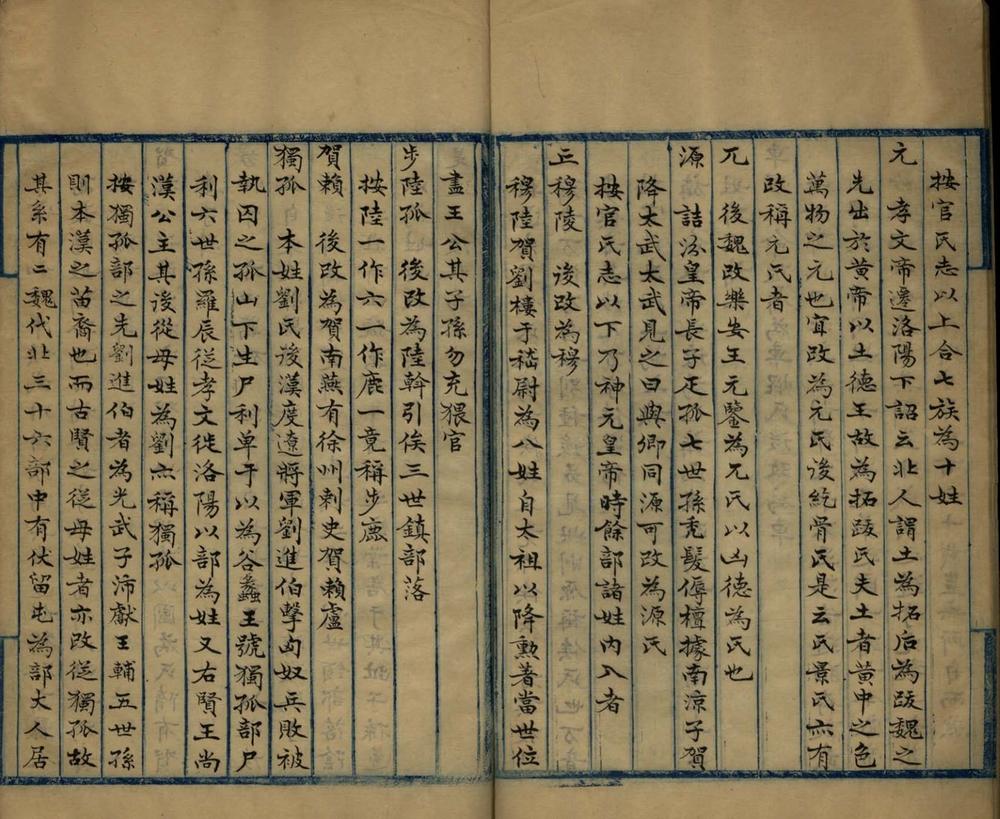 按官氏志以上合七族為十姓
元　孝文帝遷洛陽下詔云北人謂土為拓后為跋魏之
先出於黃帝以土德王故為拓跋氏夫土者黃中之色
萬物之元也宜改為元氏後紇骨氏是云氏景氏亦有
改稱元氏者
兀　後魏改樂安王元鑒為兀氏以凶德為氏也
源　詰汾皇帝長子疋孤七世孫禿髮傉檀據南涼子賀
降太武太武見之曰與卿同源可改為源氏
按官氏志以下乃神元皇帝時餘部諸姓內入者
丘穆陵　後改為穆
穆陸賀劉樓于嵇尉為八姓自太祖以降勲著當世位
盡王公其子孫勿充猥官
步陸孤　後改為陸幹引俟三世鎮部落
按陸一作六一作鹿一竟稱步鹿
賀賴　後改為賀南燕有徐州刺史賀賴盧
獨孤　本姓劉氏後漢度遼將軍劉進伯擊匈奴兵敗被
執囚之孤山下生尸利单于以為谷蠡王號獨孤部尸
利六世孫羅辰從孝文徙洛陽以部為姓又右賢王尚
漢公主其後從母姓為劉亦稱獨孤
按獨孤部之先劉進伯者為光武子沛獻王輔五世孫
則本漢之苗裔也而古賢之從母姓者亦改從獨孤故
其系有二魏代北三十六部中有伏留屯為部大人居